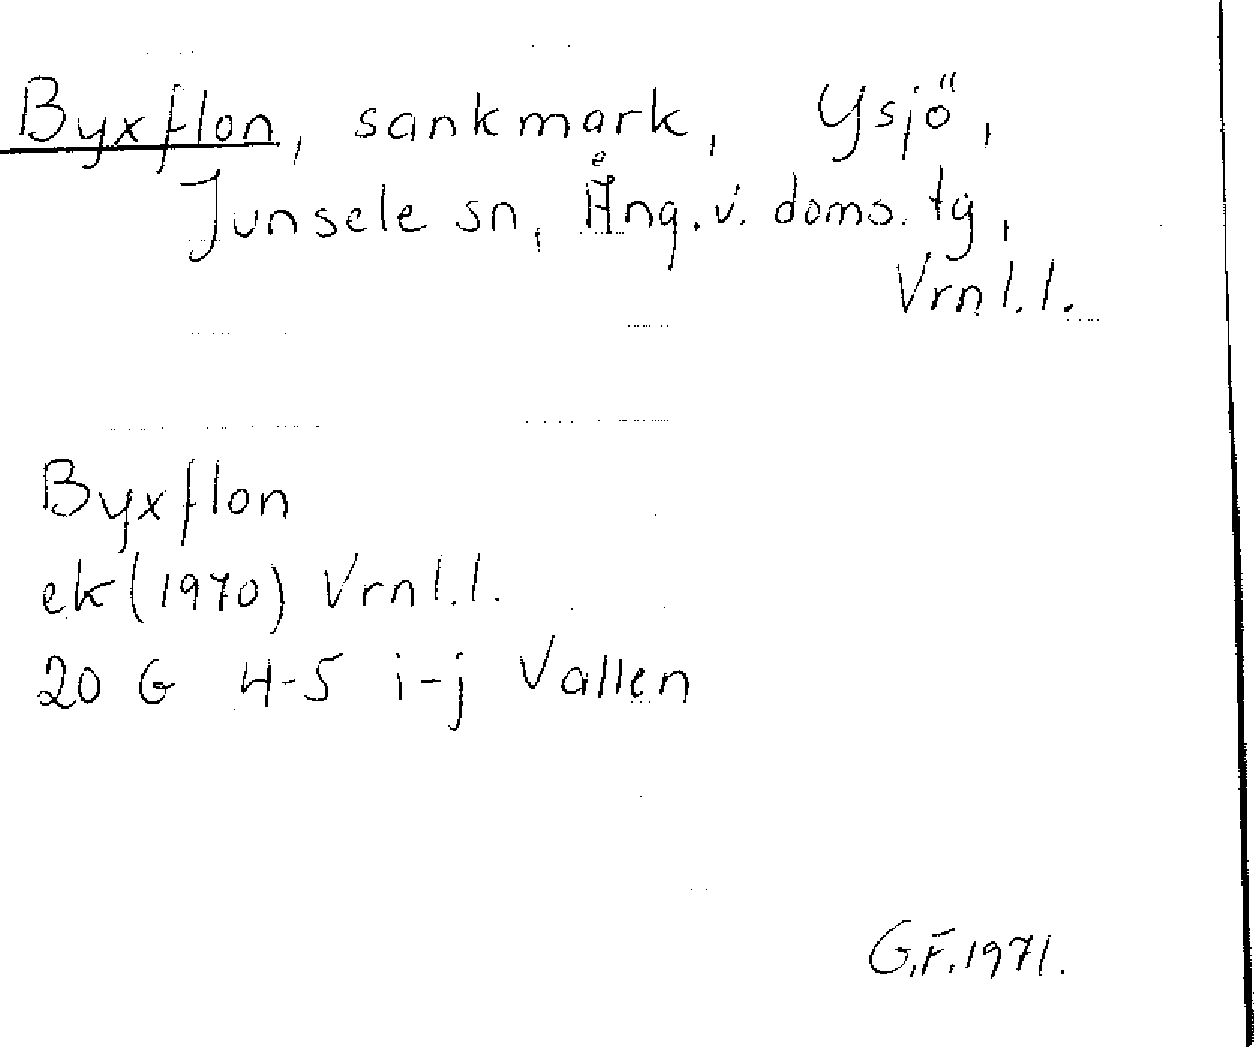 Byxflon, sankmark, Ysjö,
Junsele sn, Ång. v. doms. tg,
Vrnl. l.
Byxflon
ek (1970) Vrnl. l.
20 G 4-5 i-j Vallen
G.F. 1971.